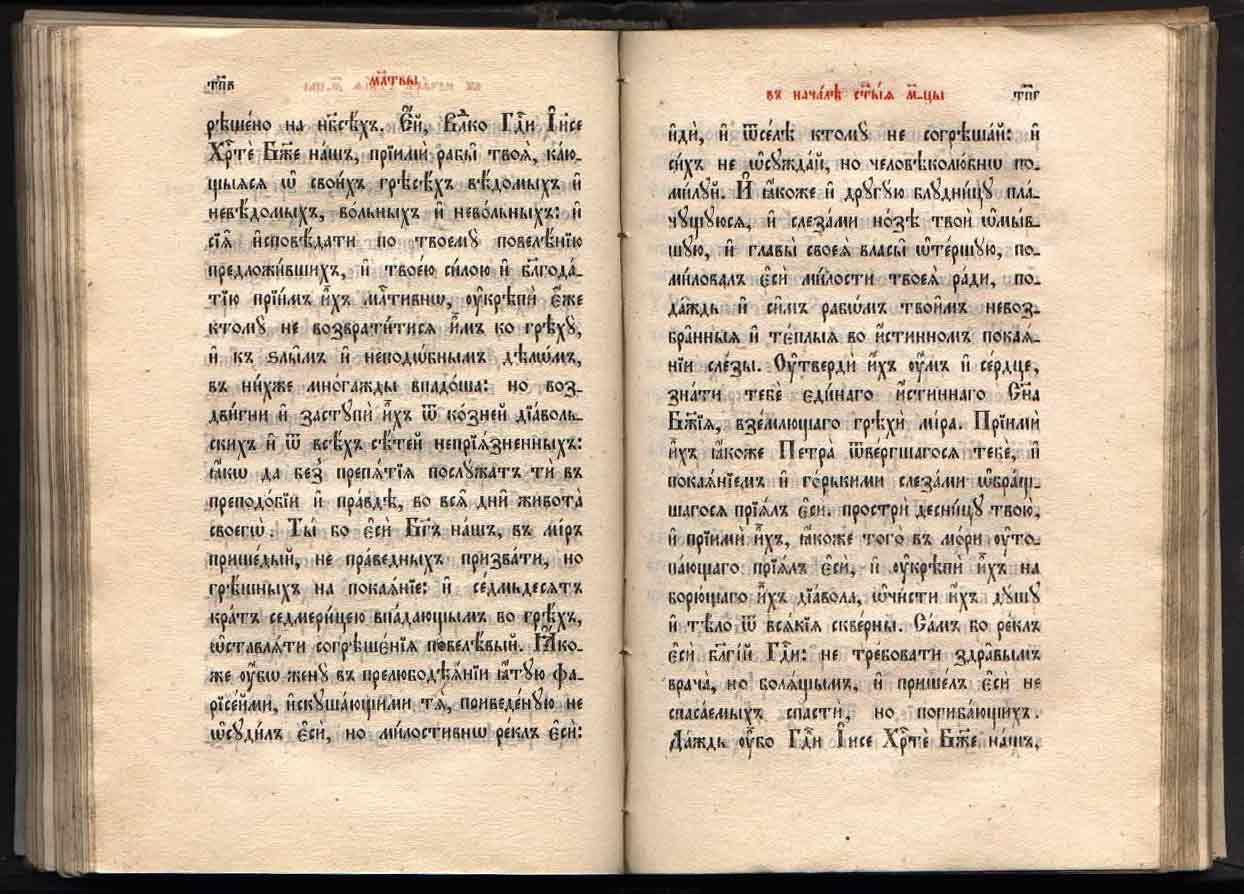 тп҃в
мл҃твы
рѣше́но на нб҃сѣ́хъ. Є҆́й, влⷣко гдⷭ҇и і҆и҃се
хрⷭ҇тѐ бж҃е на́шъ, прїимѝ рабы̀ твоѧ̑, ка́ю-
щыѧсѧ ѡ҆ свои́хъ грѣсѣ́хъ вѣ́домыхъ и҆
невѣ́домыхъ, во́льныхъ и҆ нево́льныхъ: и҆
сїѧ̑ и҆сповѣ́дати по твоемꙋ̀ повелѣ́нїю
предложи́вшихъ, и҆ твое́ю си́лою и҆ бл҃года́-
тїю прїи́мъ и҆̀хъ мл҃тивнѡ, ᲂу҆крѣпѝ є҆́же
ктомꙋ̀ не возврати́тисѧ и҆̀мъ ко грѣхꙋ̀,
и҆ къ ѕлы̑мъ и҆ неподѡ́бнымъ дѣлѡ́мъ,
въ ни́хже мно́гажды впадо́ша: но воз-
дви́гни и҆ застꙋпѝ и҆̀хъ ѿ ко́зней дїа́воль-
скихъ и҆ ѿ всѣ́хъ сѣ́тей непрїѧ́зненныхъ:
ꙗ҆́кѡ да без̾ препѧ́тїѧ послꙋ́жатъ тѝ въ
преподо́бїи и҆ пра́вдѣ, во всѧ̑ дни̑ живота̀
своегѡ̀. Ты́ бо є҆сѝ бг҃ъ на́шъ, въ мі́ръ
прише́дый, не пра́ведныхъ призва́ти, но
грѣ́шныхъ на покаѧ́нїе: и҆ се́дмьдесѧтъ
кра́тъ седмери́цею впа́дающымъ во грѣ́хъ,
ѡ҆ставлѧ́ти согрѣшє́нїѧ повелѣ́вый. Ꙗ҆́ко-
же ᲂу҆́бѡ женꙋ̀ въ прелюбодѣѧ́нїи ꙗ҆́тꙋю фа-
рїсе́йми, и҆скꙋша́ющими тѧ̀, приведе́нꙋю не
ѡ҆сꙋди́лъ є҆сѝ, но ми́лостивнѡ ре́клъ є҆сѝ:
въ нача́лѣ ст҃ы́ѧ м҃-цы
тп҃г
и҆дѝ, и҆ ѿсе́лѣ ктомꙋ̀ не согрѣша́й: и҆
си́хъ не ѡ҆сꙋжда́й, но человѣколю́бнѡ по-
ми́лꙋй. И҆ ꙗ҆́коже и҆ дрꙋгꙋ́ю блꙋдни́цꙋ пла́-
чꙋщꙋюсѧ, и҆ слеза́ми но́зѣ твоѝ ѡ҆мы́в-
шꙋю, и҆ главы̀ своеѧ̀ власы̑ ѡ҆те́ршꙋю, по-
ми́ловалъ є҆сѝ ми́лости твоеѧ̀ ра́ди, по-
да́ждь и҆ си̑мъ рабѡ́мъ твои̑мъ невоз-
бра́нныѧ и҆ тє́плыѧ во и҆́стинномъ покаѧ́-
нїи слє́зы. Оу҆твердѝ и҆̀хъ ᲂу҆́мъ и҆ се́рдце,
зна́ти тебѐ єди́наго и҆́стиннаго сн҃а
бж҃їѧ, взе́млющаго грѣхѝ мі́ра. Прїимѝ
и҆̀хъ ꙗ҆́коже Петра̀ ѿве́ргшагосѧ тебє̀, и҆
покаѧ́нїемъ и҆ го́рькими слеза́ми ѡ҆бра́щ-
шагосѧ прїѧ́лъ є҆сѝ. прострѝ десни́цꙋ твою̀,
и҆ прїимѝ и҆̀хъ, ꙗ҆́коже того̀ въ мо́ри ᲂу҆то-
па́ющаго прїѧ́лъ є҆сѝ, и҆ ᲂу҆крѣпѝ и҆̀хъ на
борю́щаго и҆̀хъ дїа́вола, ѡ҆чи́сти и҆̀хъ дꙋ́шꙋ
и҆ тѣ́ло ѿ всѧ́кїѧ скве́рны. Са́мъ бо ре́клъ
є҆сѝ бл҃гі́й гдⷭ҇и: не тре́бовати здра̑вымъ
врача̀, но болѧ́щымъ, и҆ прише́лъ є҆сѝ не
спаса́емыхъ спастѝ, но погиба́ющихъ.
Да́ждь ᲂу҆̀бо гдⷭ҇и і҆и҃се хрⷭ҇тѐ бж҃е на́шъ,